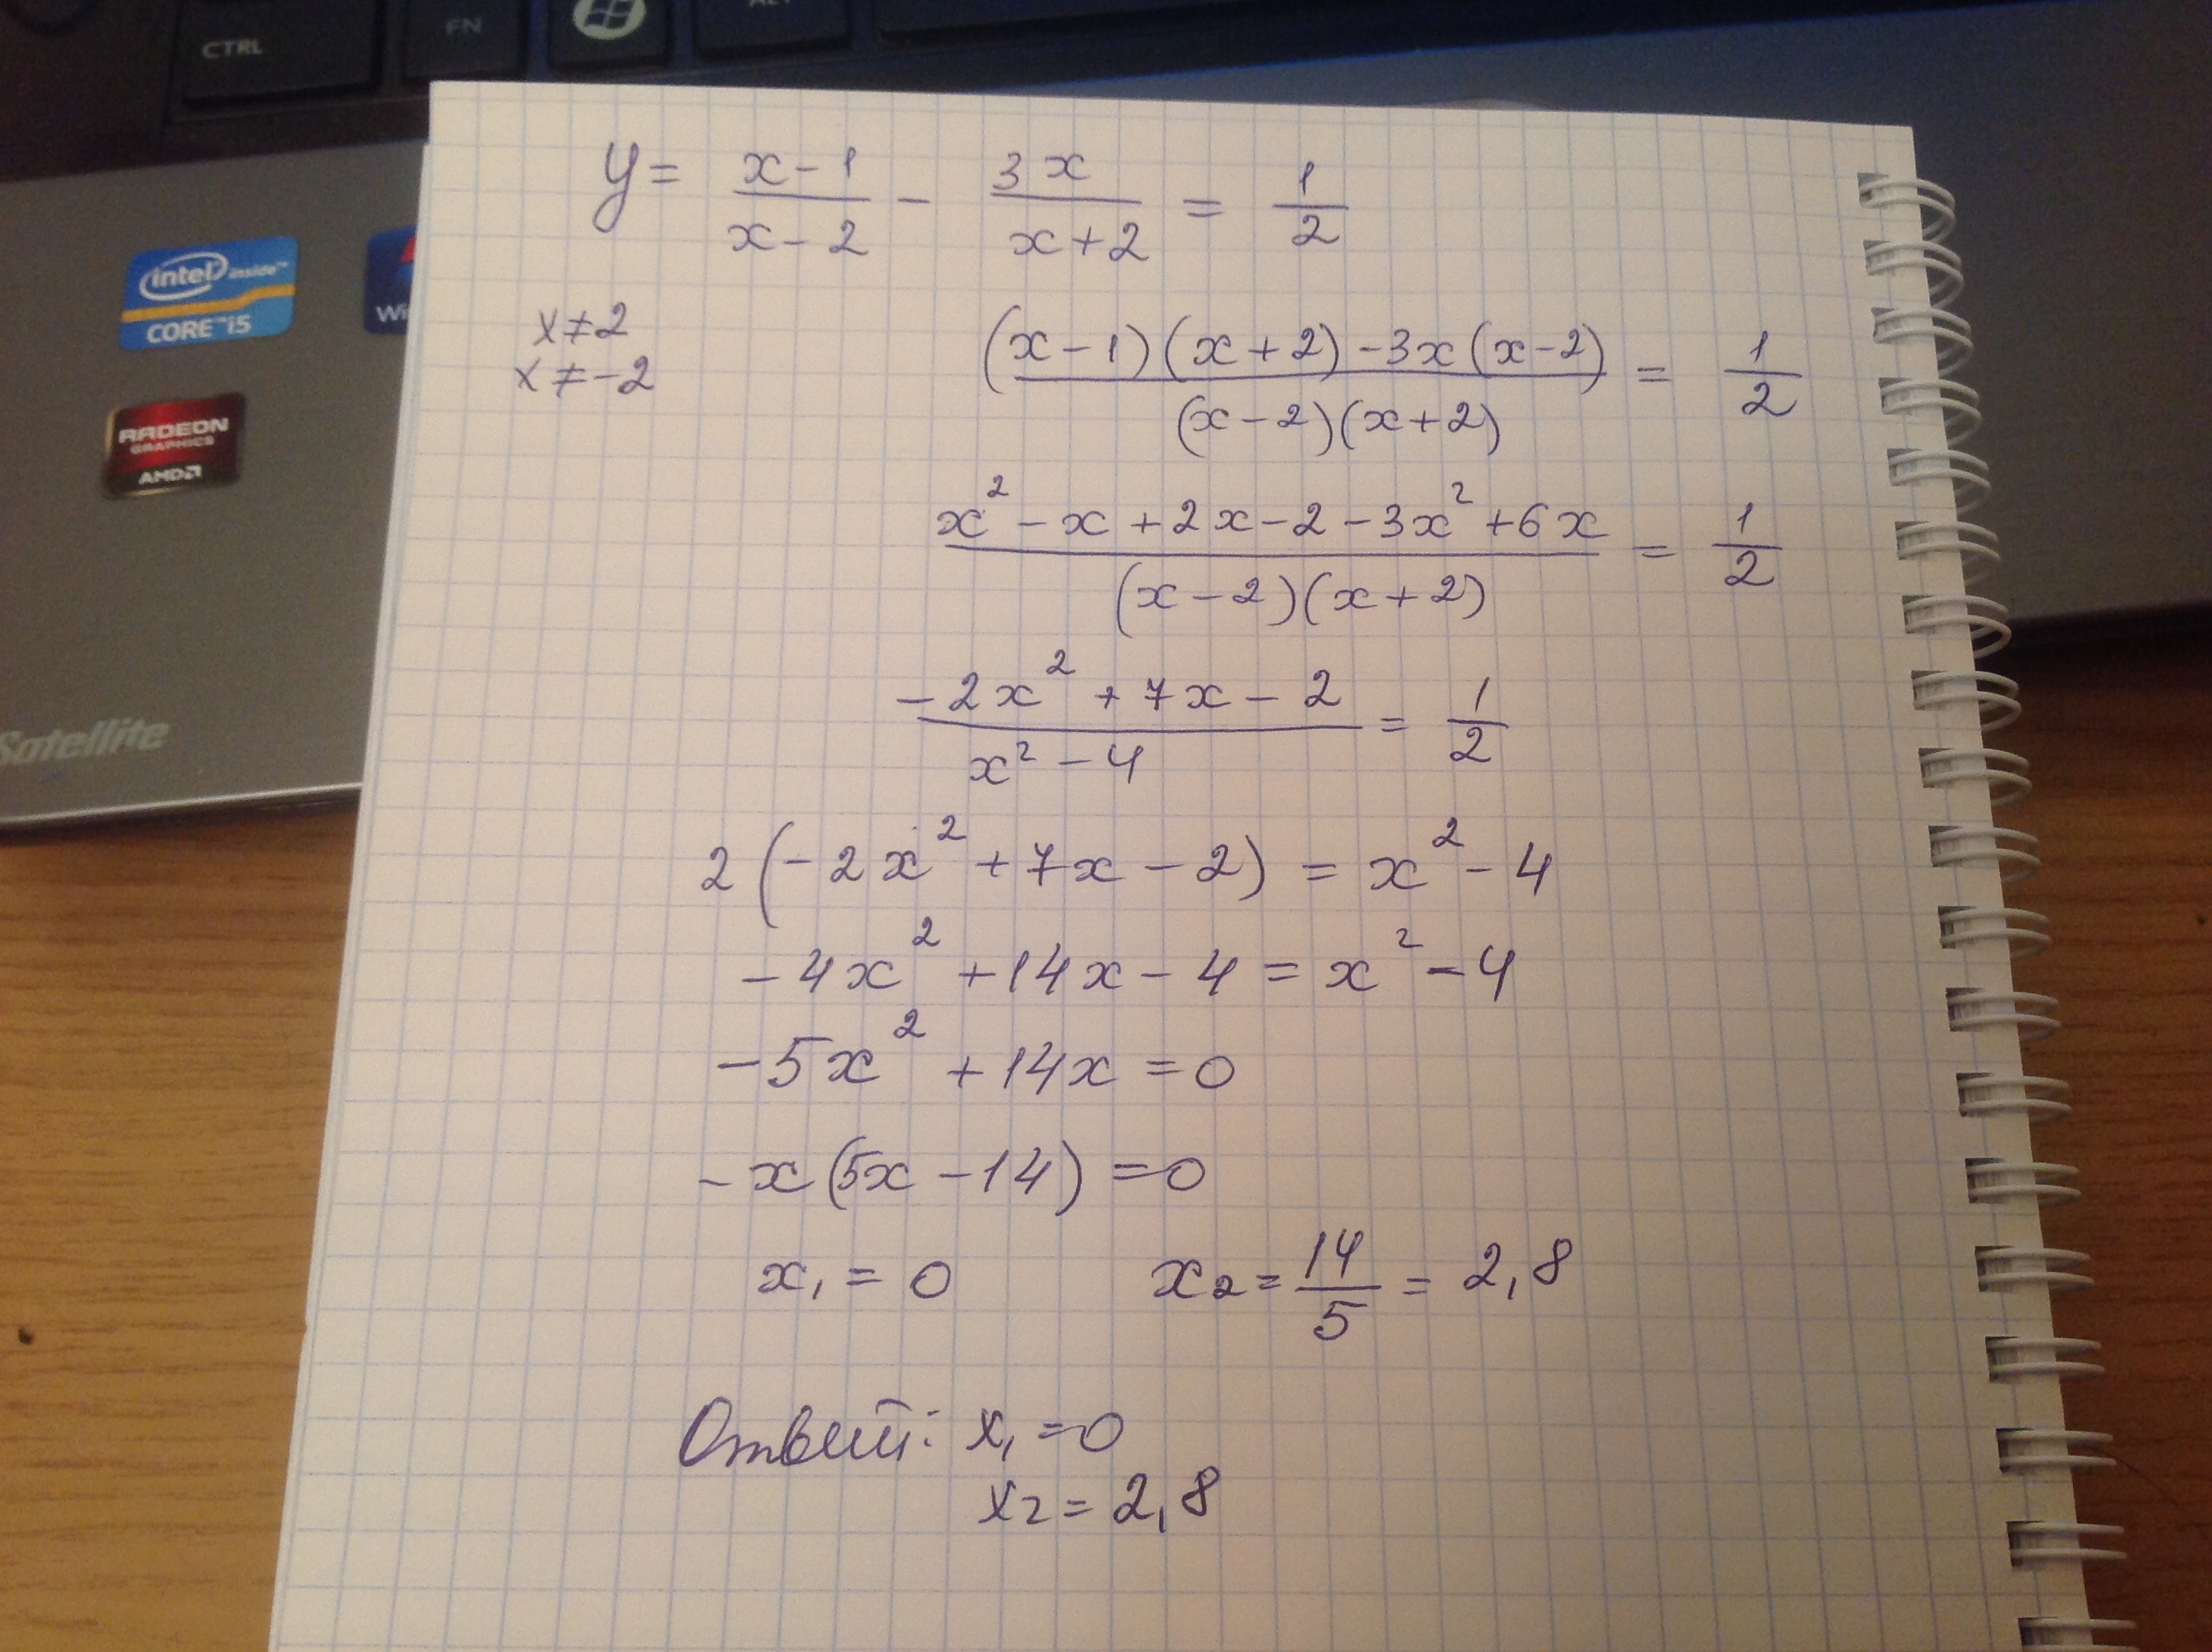 CTRL
FN
ALT
intel inside™
CORE™ i5
Win
RADEON
GRAPHICS
AMD
Satellite
y = \frac{x-1}{x-2} - \frac{3x}{x+2} = \frac{1}{2}
x ≠ 2
x ≠ -2
\frac{(x-1)(x+2)-3x(x-2)}{(x-2)(x+2)} = \frac{1}{2}
\frac{x² - x + 2x - 2 - 3x² + 6x}{(x-2)(x+2)} = \frac{1}{2}
\frac{-2x² + 7x - 2}{x² - 4} = \frac{1}{2}
2(-2x² + 7x - 2) = x² - 4
-4x² + 14x - 4 = x² - 4
-5x² + 14x = 0
-x(5x - 14) = 0
x₁ = 0 x₂ = \frac{14}{5} = 2,8
Ответ: x₁ = 0
x₂ = 2,8